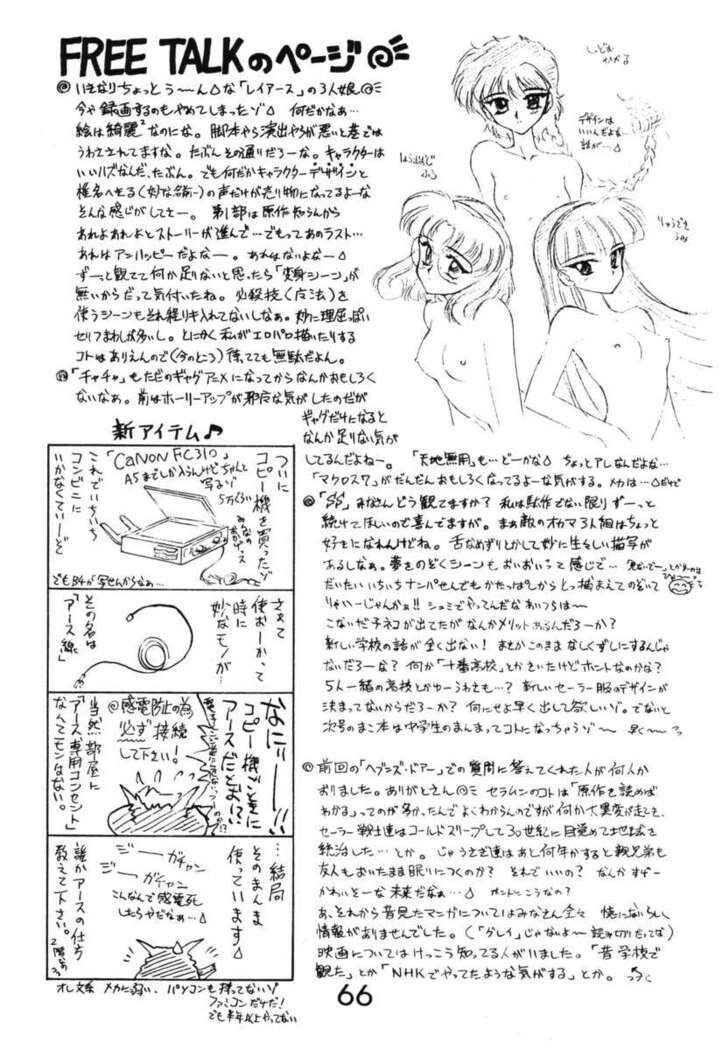 FREE TALKのページ
いきなりちょっとう～ん△な「レイアース」の3人娘
今や録画するのもやめてしまったゾ△ 何だかなぁ…
絵は綺麗なのにな。脚本やら演出やらが悪いと巷では
うわさされてますな。たぶんその通りだろーな。キャラクターは
いいハズなんだ、たぶん。でも何だかキャラクターデザインと
椎名へきる(妙な名前ー)の声だけが売り物になってるよーな
そんな感じがしてもー。第1部は原作知らんから
あれよあれよとストーリーが進んで…でもってあのラスト…
あれはアンハッピーだよなー。あれはないよなー△
ずーっと観てて何か足りないと思ったら「変身シーン」が
無いからだって気付いたね。必殺技(魔法)を
使うシーンもそれ程リキ入れてないしなぁ。妙に理屈っぽい
セリフまわしが多いし。とにかく私がエロパロ描いたりする
コトはありえんので(今のところ)待ってても無駄だよん。
「チャチャ」もただのギャグアニメになってからなんかおもしろく
ないなぁ。前はホーリーアップが邪魔な気がしたのだが
ギャグだけになると
なんか足りない気が
してるんだよねー。「天地無用」も…どーかな△ ちょっとアレなんだよな…
「マクロス7」がだんだんおもしろくなってるよーな気がする。メカは…だけど
しどう
ひかる
デザインは
いいんだよな…
話が…△
ほうおうじ
ふう
りゅうざき
うみ
新アイテム♪
ついに
コピー機を買ったゾ
「CANON FC310」
A5までしか入らんけどちゃんと
写るゾ
5万くらい
みんなの
おかげっス
これでいちいち
コンビニに
いかなくてぃーど
でもB4が写せんからなぁ…
さぁて
使おーかって
時に
妙なモノが…
その名は
「アース線」
なにィーー!!
コピー機ごときに
アースだとォ!?
@感電防止の為
必ず接続
して下さい!
当然部屋に
「アース専用コンセント」
なんてモンはない。
…結局
そのまんま
使っています△
ジー ガチャン
ジー ガチャン
こんなんで感電死
したらやだなぁ…△
誰かアースの仕方
教えて下さい。
オレ文系 メカに弱い、パソコンも持ってないゾ
ファミコンだけだ!
でも半年以上やってない
「SS」みなさんどう観てますか? 私は駄作でない限りずーっと
続けてほしいので喜んでますが。まぁ敵のオカマ3人組はちょっと
好きになれんけどね。舌なめずりとかして妙に生々しい描写が
あるしなぁ。夢をのぞくシーンもおいおいって感じで…
だいたいいちいちナンパせんでもかたっぱしからとっ捕まえてのぞいて
りゃいーじゃんかぁ!! シュミでやってんだなあいつらは～
こないだ子ネコが出てたがなんかメリットあるんだろーか?
新しい学校の話が全く出ない! まさかこのままなしくずしにするんじゃ
ないだろーな? 何か「十番高校」とかきいたけどホントなのかな?
5人一緒の高校とかゆーうわさも…? 新しいセーラー服のデザインが
決まってないからだろーか? 何にせよ早く出して欲しいゾ。でないと
次号のまこ本は中学生のまんまってコトになっちゃうゾ～ 早く～
前回の「ヘブンズ・ドアー」での質問に答えてくれた人が何人か
おりました。ありがとさん セラムンのコトは「原作を読めば
わかる」ってのが多か、たんでよくわからんのですが何か大異変が起こって、
セーラー戦士達はコールドスリープして30世紀に目覚めて地球を
統治した…とか。じゃうさぎ達はあと何年かすると親兄弟も
友人もおいたまま眠りにつくのか? それでいいの? なんかすげー
かわいそーな未来だなぁ…△ ホントにこうなの?
あ、それから昔見たマンガについてはみなさん全々
情報がありませんでした。(「ダレイ」じゃないよ～ 読み切りだってな)
映画についてはけっこう知ってる人がいました。「昔学校で
観た」とか「NHKでやってたような気がする」とか。つづく
66